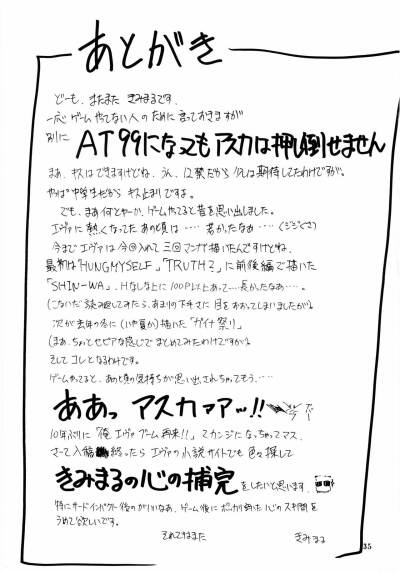 あとがき
どーも、またまた きみまるです。
一応ゲームやってない人のために言っておきますが
別に
AT99になってもアスカは押し倒せません
まあ、キスはできますけどね、うん、12禁だから 少し期待してたわけですが。
やっぱ中学生だから キス止まりですよ。
でも、まあ何とゆーか、ゲームやってると昔を思い出しました。
エヴァに熱くなってた あの頃は…… 若かったなぁ……
今まで エヴァは 今回入れて 三回マンガ描いたんですけどね、
最初は「HUNGMYSELF」「TRUTH?」に前後編で描いた
「SHIN-WA」、Hなし 以上あって……長かったなあ……。
(こないだ読み返してみたら、あまりの下手さに 目をおおってしまいましたが)
次が去年の冬に(いや夏か)描いた「ガイナ祭り」
(まあ、ちょっとセピアな感じで まとめてみたわけですが)
そして コレとなるわけです。
ゲームやってると、あの頃の気持ちが思い出されちゃってもう……
ああっ アスカァァーッ!!
10年ぶりに「俺エヴァブーム再来!!」てカンジになっちゃってマス。
さーて入稿 終ったら エヴァの小説サイトでも色々探して
きみまるの心の補完
をしたいと思います。
特にサードインパクト後のがいいなあ、ゲーム後にポッカリ開いた心のスキ間を
うめて欲しいです。
それではまた
きみまる
35